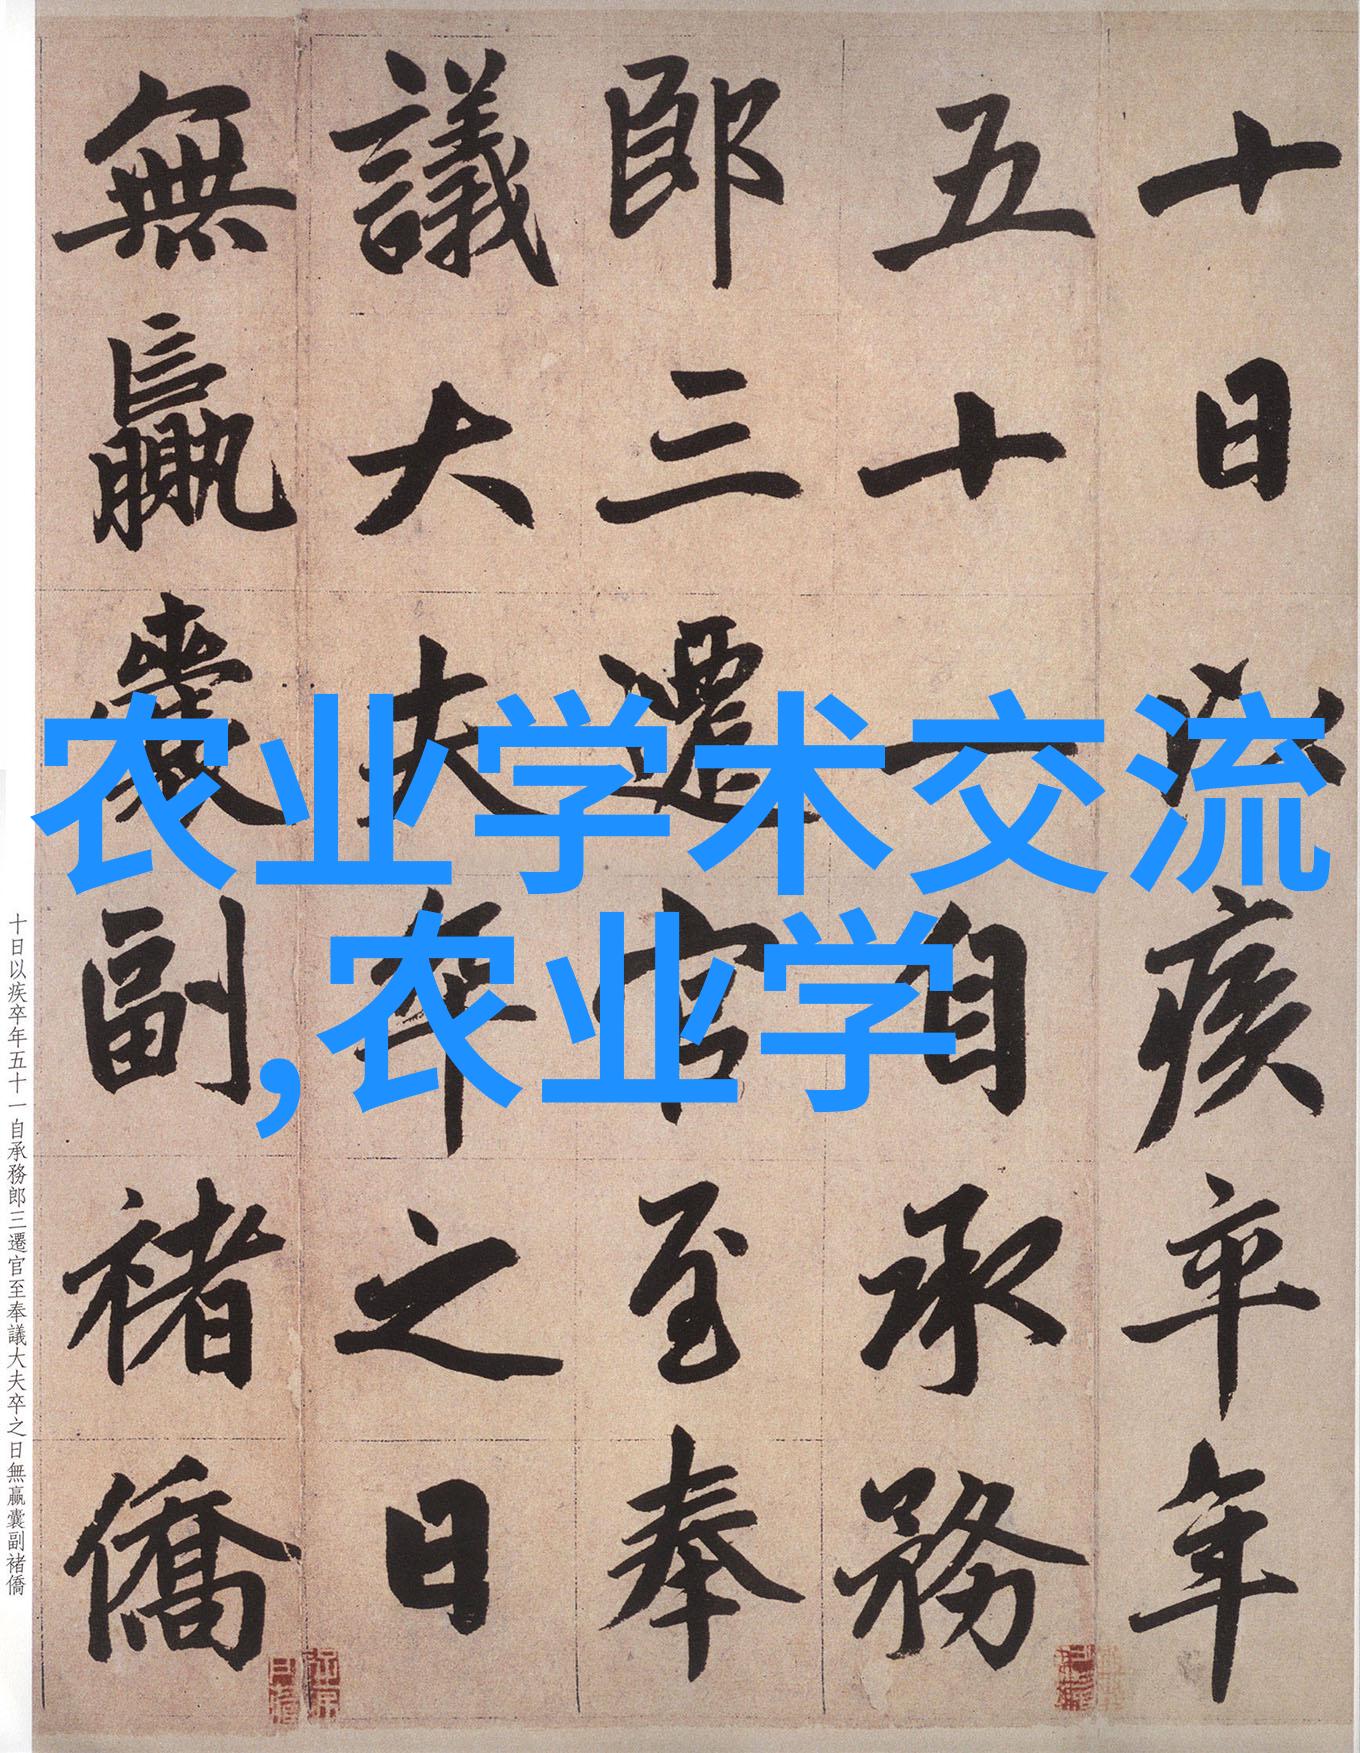 十日以疾卒年
五十一自承務
郎三遷官至奉
議大夫卒之日
無贏囊副褚僑
农业学术交流
,农业学
十日以疾卒年五十一自承務郎三遷官至奉議大夫卒之日無贏囊副褚僑